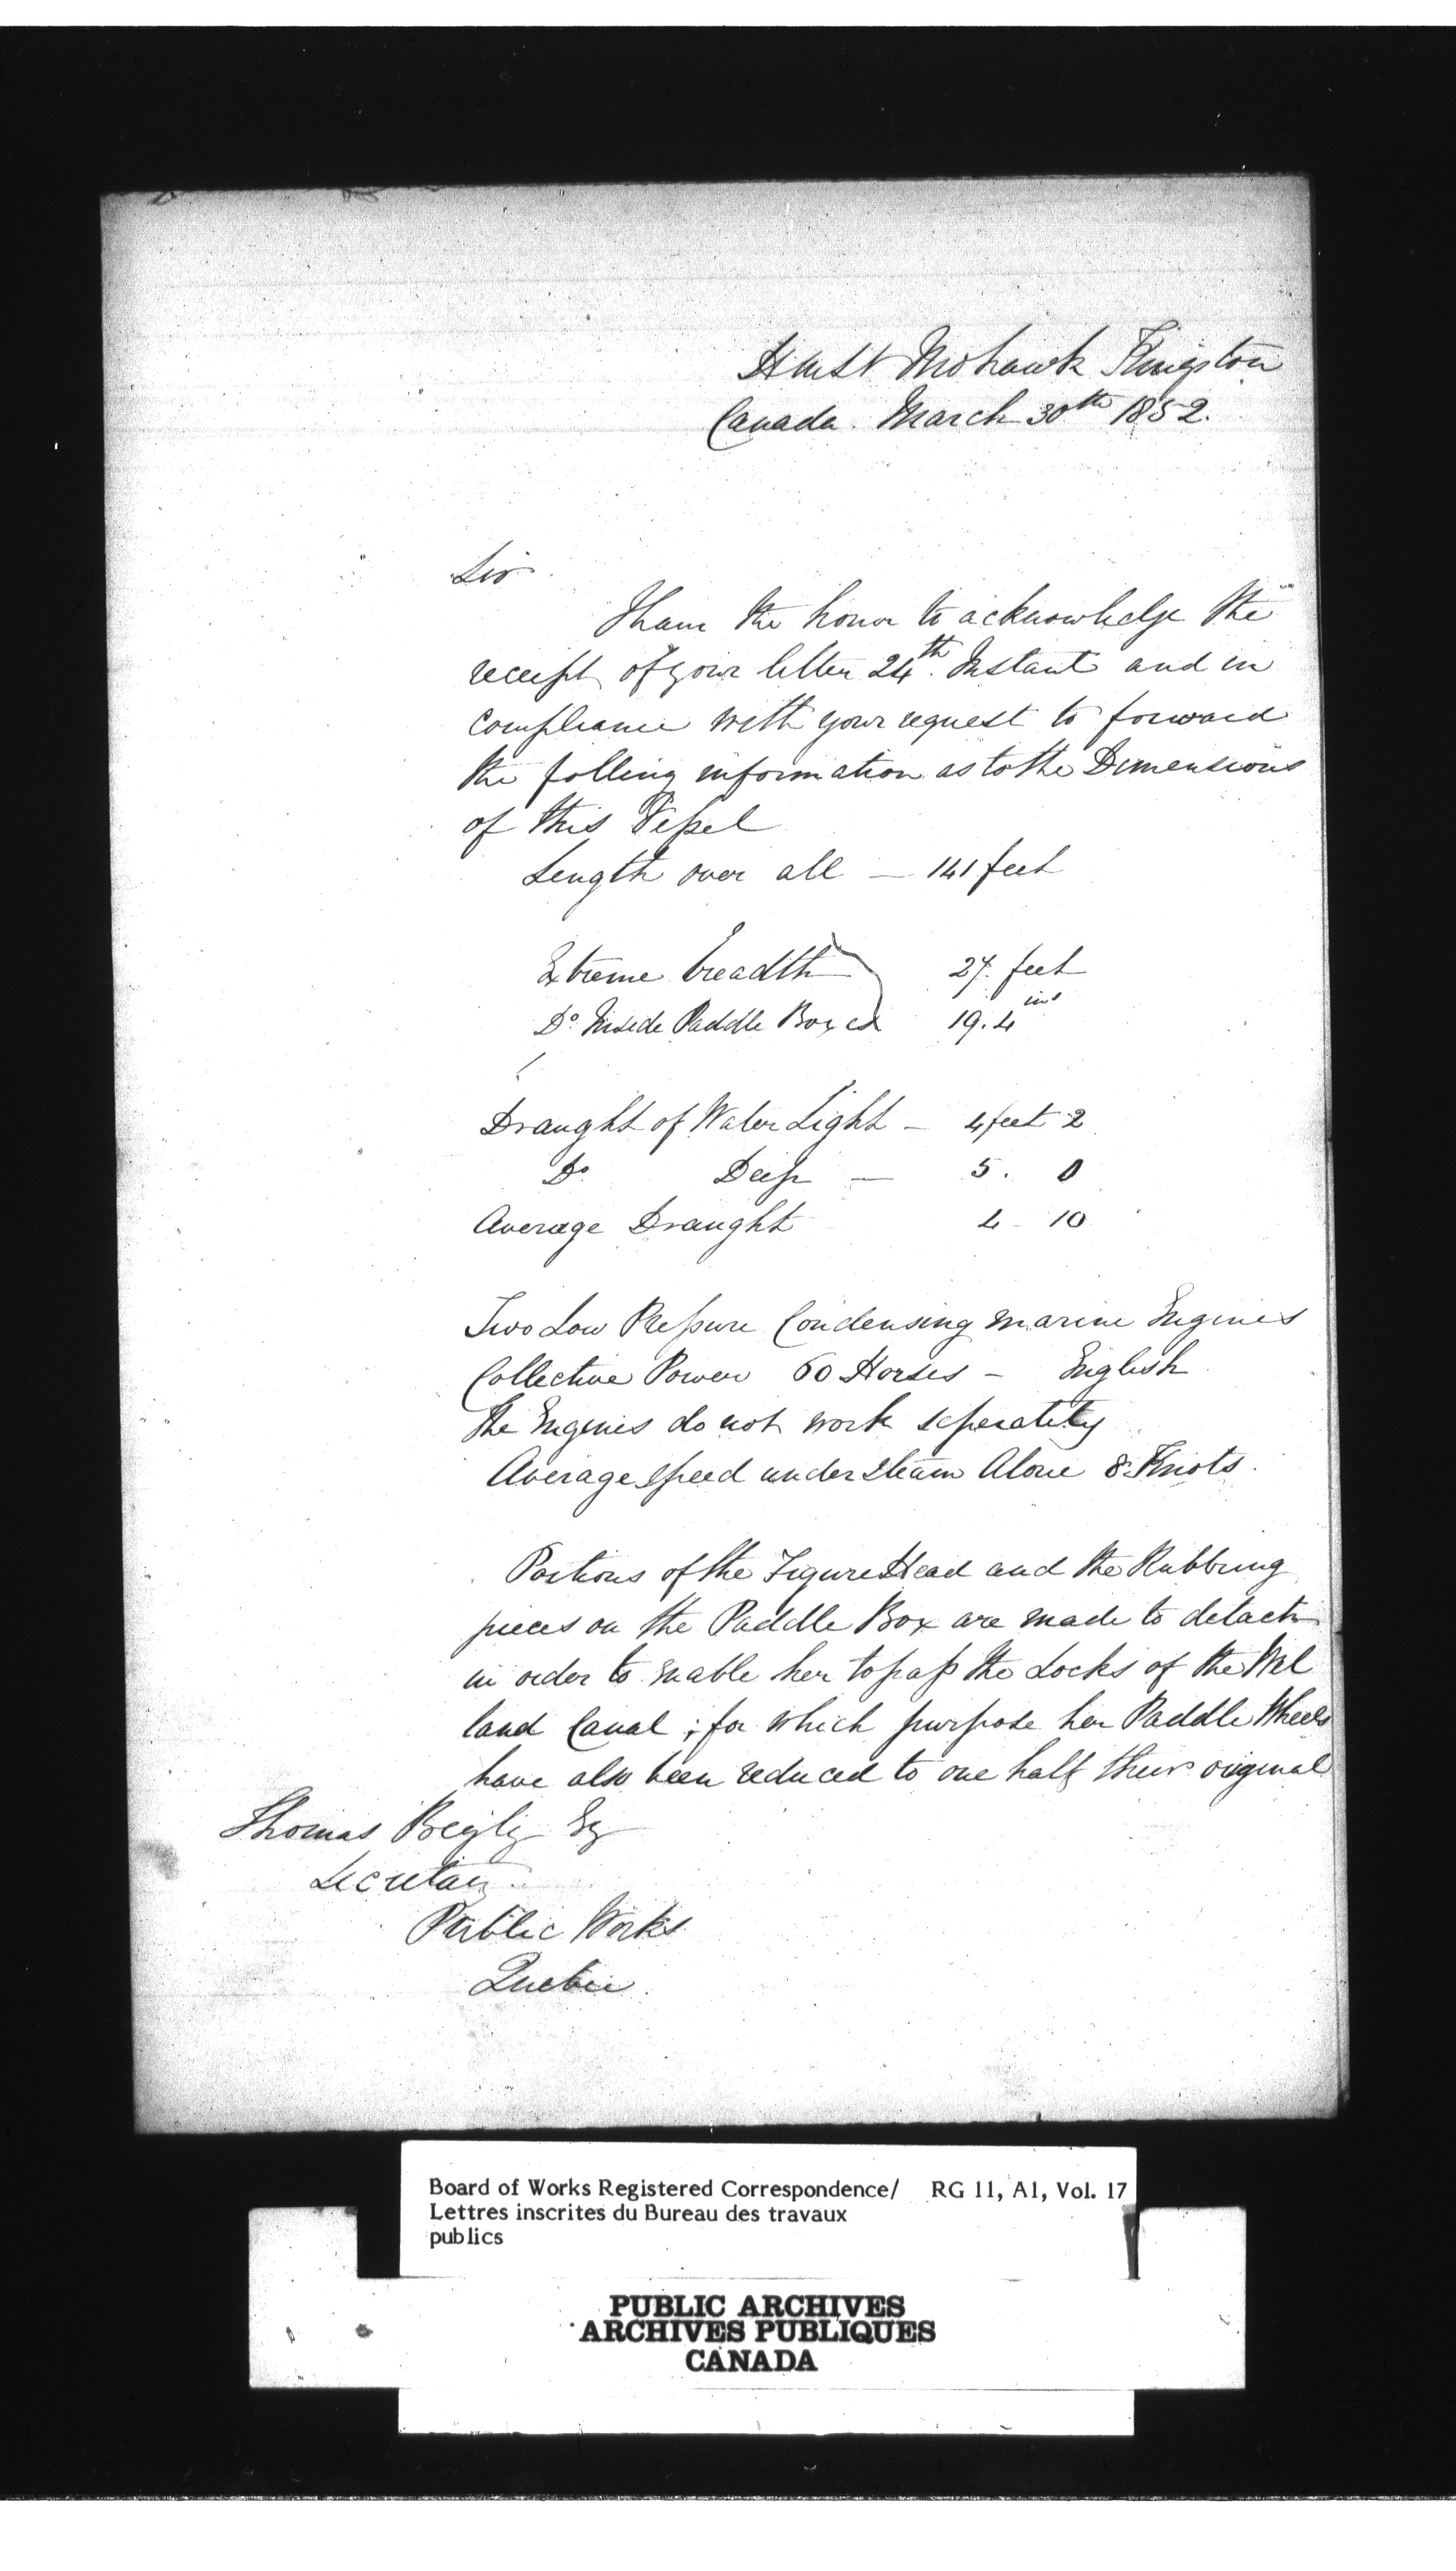 HMSV Mohawk Kingston
Canada. March 30th 1852.
Sir
I have the honor to acknowledge the
receipt of your letter 24th. Instant and in
compliance with your request to forward
the folling information as to the Dimensions
of this Vessel
Length over all — 141 feet
Extreme breadth 27. feet
Do. Inside Paddle Boxes 19.4 ins
Draught of Water Light — 4 feet 2
Do. Deep — 5. 0
Average Draught 4 - 10
Two Low Pressure Condensing Marine Engines
Collective Power 60 Horses — English
The Engines do not work seperately
Average speed under Steam Alone 8. Knots.
Portions of the Figure Head and the Rubbing
pieces on the Paddle Box are made to detach
in order to enable her to pass the Locks of the Wel
land Canal ; for which purpose her Paddle Wheels
have also been reduced to one half their original
Thomas Begly Esq
Secretary
Public Works
Quebec.
Board of Works Registered Correspondence/ RG 11, A1, Vol. 17
Lettres inscrites du Bureau des travaux
publics
PUBLIC ARCHIVES
ARCHIVES PUBLIQUES
CANADA